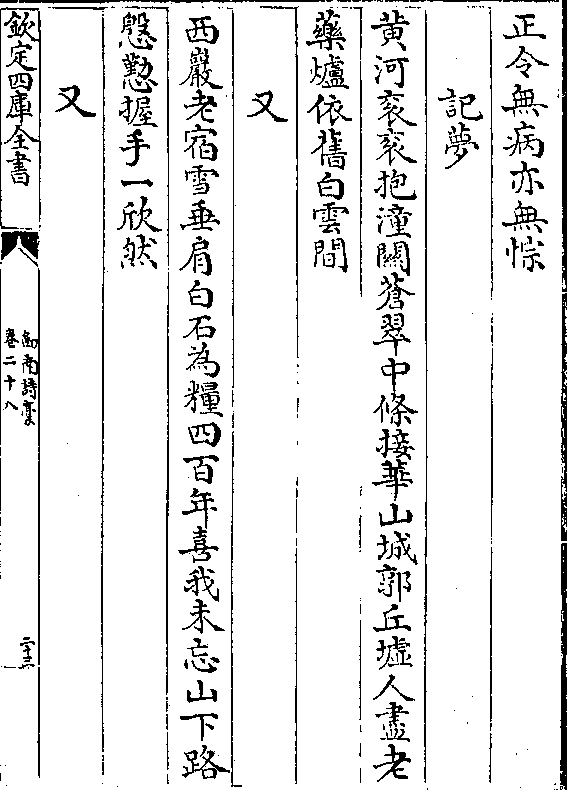 正令無病亦無悰
記夢
黄河衮衮抱潼關蒼翠中條接華山城郭丘墟人盡老
藥爐依舊白雲間
又
西巖老宿雪垂肩白石為糧四百年喜我未忘山下路
慇懃握手一欣然
又
欽定四庫全書
劍南詩藁
卷二十八
二十三